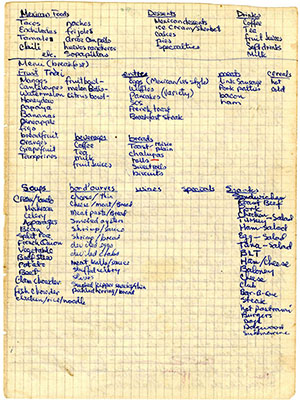 Mexican Foods
Tacos nachos
Enchiladas frijoles
Tamales
Chili huevos rancheros
etc. Sopapillas
Desserts
Mexican desserts
ice cream/sherbet
cakes
pies
Specialties
Drinks
Coffee
Tea
fruit juices
Soft drinks
Milk
Menu (breakfast)
Fruit Tray
Mangos
Cantaloupes
Watermelon
Honeydew
papaya
Bananas
pineapple
figs
breadfruit
Oranges
Grapefruit
Tangerines
fruit bowl
melon
citrus bowl
beverages
Coffee
Tea
Milk
fruit juices
entrees
eggs (Mexican/us style)
Waffles
Pancakes (variety)
French toast
Breakfast steak
breads
Toast
plain
chalupas
rolls
Sweet rolls
biscuits
meat
Link Sausage
Pork patties
bacon
ham
cereals
hot
cold
Soups
Tomato
Chicken
Celery
Asparagus
Bean
Split Pea
French Onion
Vegetable
Beef stew
Potato
Beef
Clam chowder
fish chowder
chicken/rice/noodle
hord'ourves
Cheese/thin
Cheese/meat/Bread
Meat pasts/Bread
Smoked oyster
Shrimp/sauce
Shrimp/bread
deviled eggs
deviled clams
Meat balls/sauce
stuffed celery
olives
wines
specials
Sandwiches
Roast Beef
Pork
Chicken-Salad
Turkey
Ham-Salad
Egg-Salad
Tuna-Salad
BLT
Ham/Cheese
Baloney
Cheese
Club
Bar-B-Que
Steak
hot pastrami
Burgers
Dogs
Dogwood
Submarine